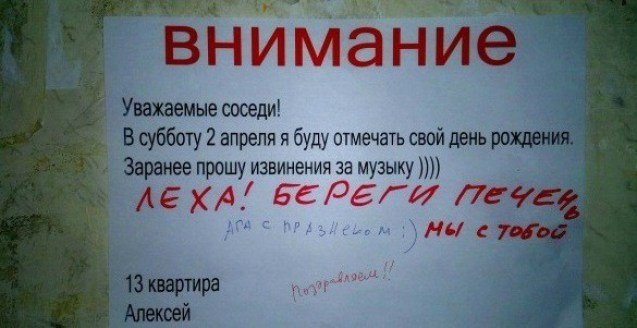 внимание
Уважаемые соседи!
В субботу 2 апреля я буду отмечать свой день рождения.
Заранее прошу извинения за музыку ))))
ЛЕХА! БЕРЕГИ ПЕЧЕНЬ
АГА С ПРАЗНЕКОМ :) МЫ С ТОБОЙ
Поздравляем!!
13 квартира
Алексей